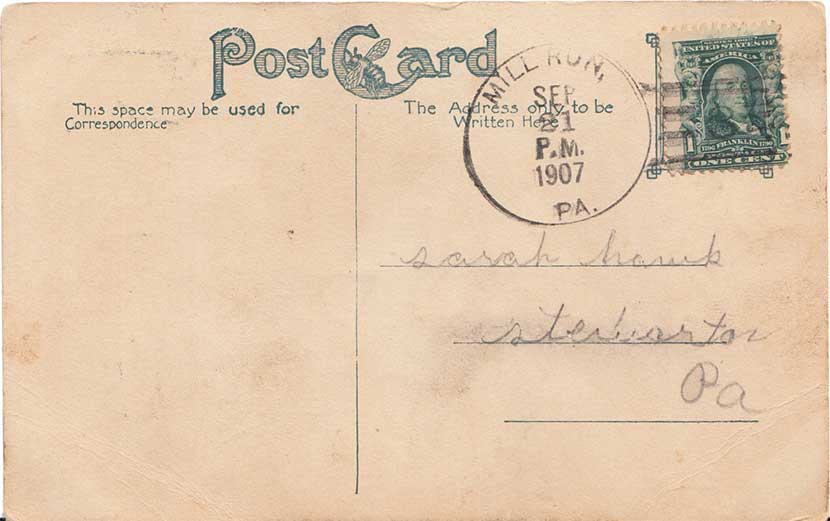 Post Card
This space may be used for
Correspondence
The Address only to be
Written Here
MILL RUN,
SEP
21
P.M.
1907
PA.
SERIES 1902
UNITED STATES OF
AMERICA
1790 FRANKLIN 1790
1 POSTAGE 1
ONE CENT
sarah hawk
stewarton
Pa